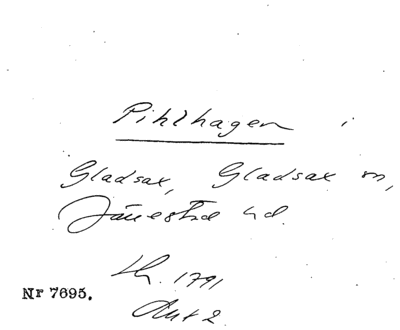 Pihlhagen i
Gladsax, Gladsax sn,
Järrestad hd.
Lh. 1791
Akt 2
Nr 7695.